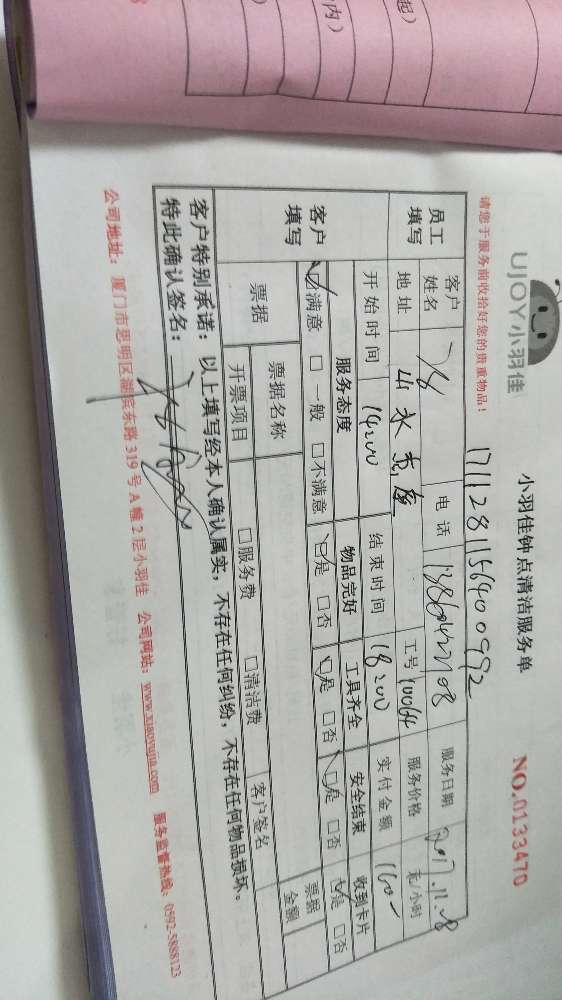 起)
内)
UJOY小羽佳
小羽佳钟点清洁服务单
NO.0133470
请您于服务前收拾好您的贵重物品!
1711281156400992
员工填写
客户姓名
电话
服务日期
地址
山水
工号 10064
服务价格
元/小时
开始时间 14:00
结束时间 18:00
实付金额 160-
客户填写
服务态度
物品完好
工具齐全
安全结束
收到卡片
☑满意 □一般 □不满意
☑是 □否
☑是 □否
☑是 □否
☑是 □否
票据
票据名称
客户签名
票据金额
开票项目
□服务费
□清洁费
客户特别承诺:以上填写经本人确认属实,不存在任何纠纷,不存在任何物品损坏。
特此确认签名:
公司地址:厦门市思明区湖滨东路319号A幢2层小羽佳
公司网站:www.xiaoyujia.com
服务监督热线:0592-5888123